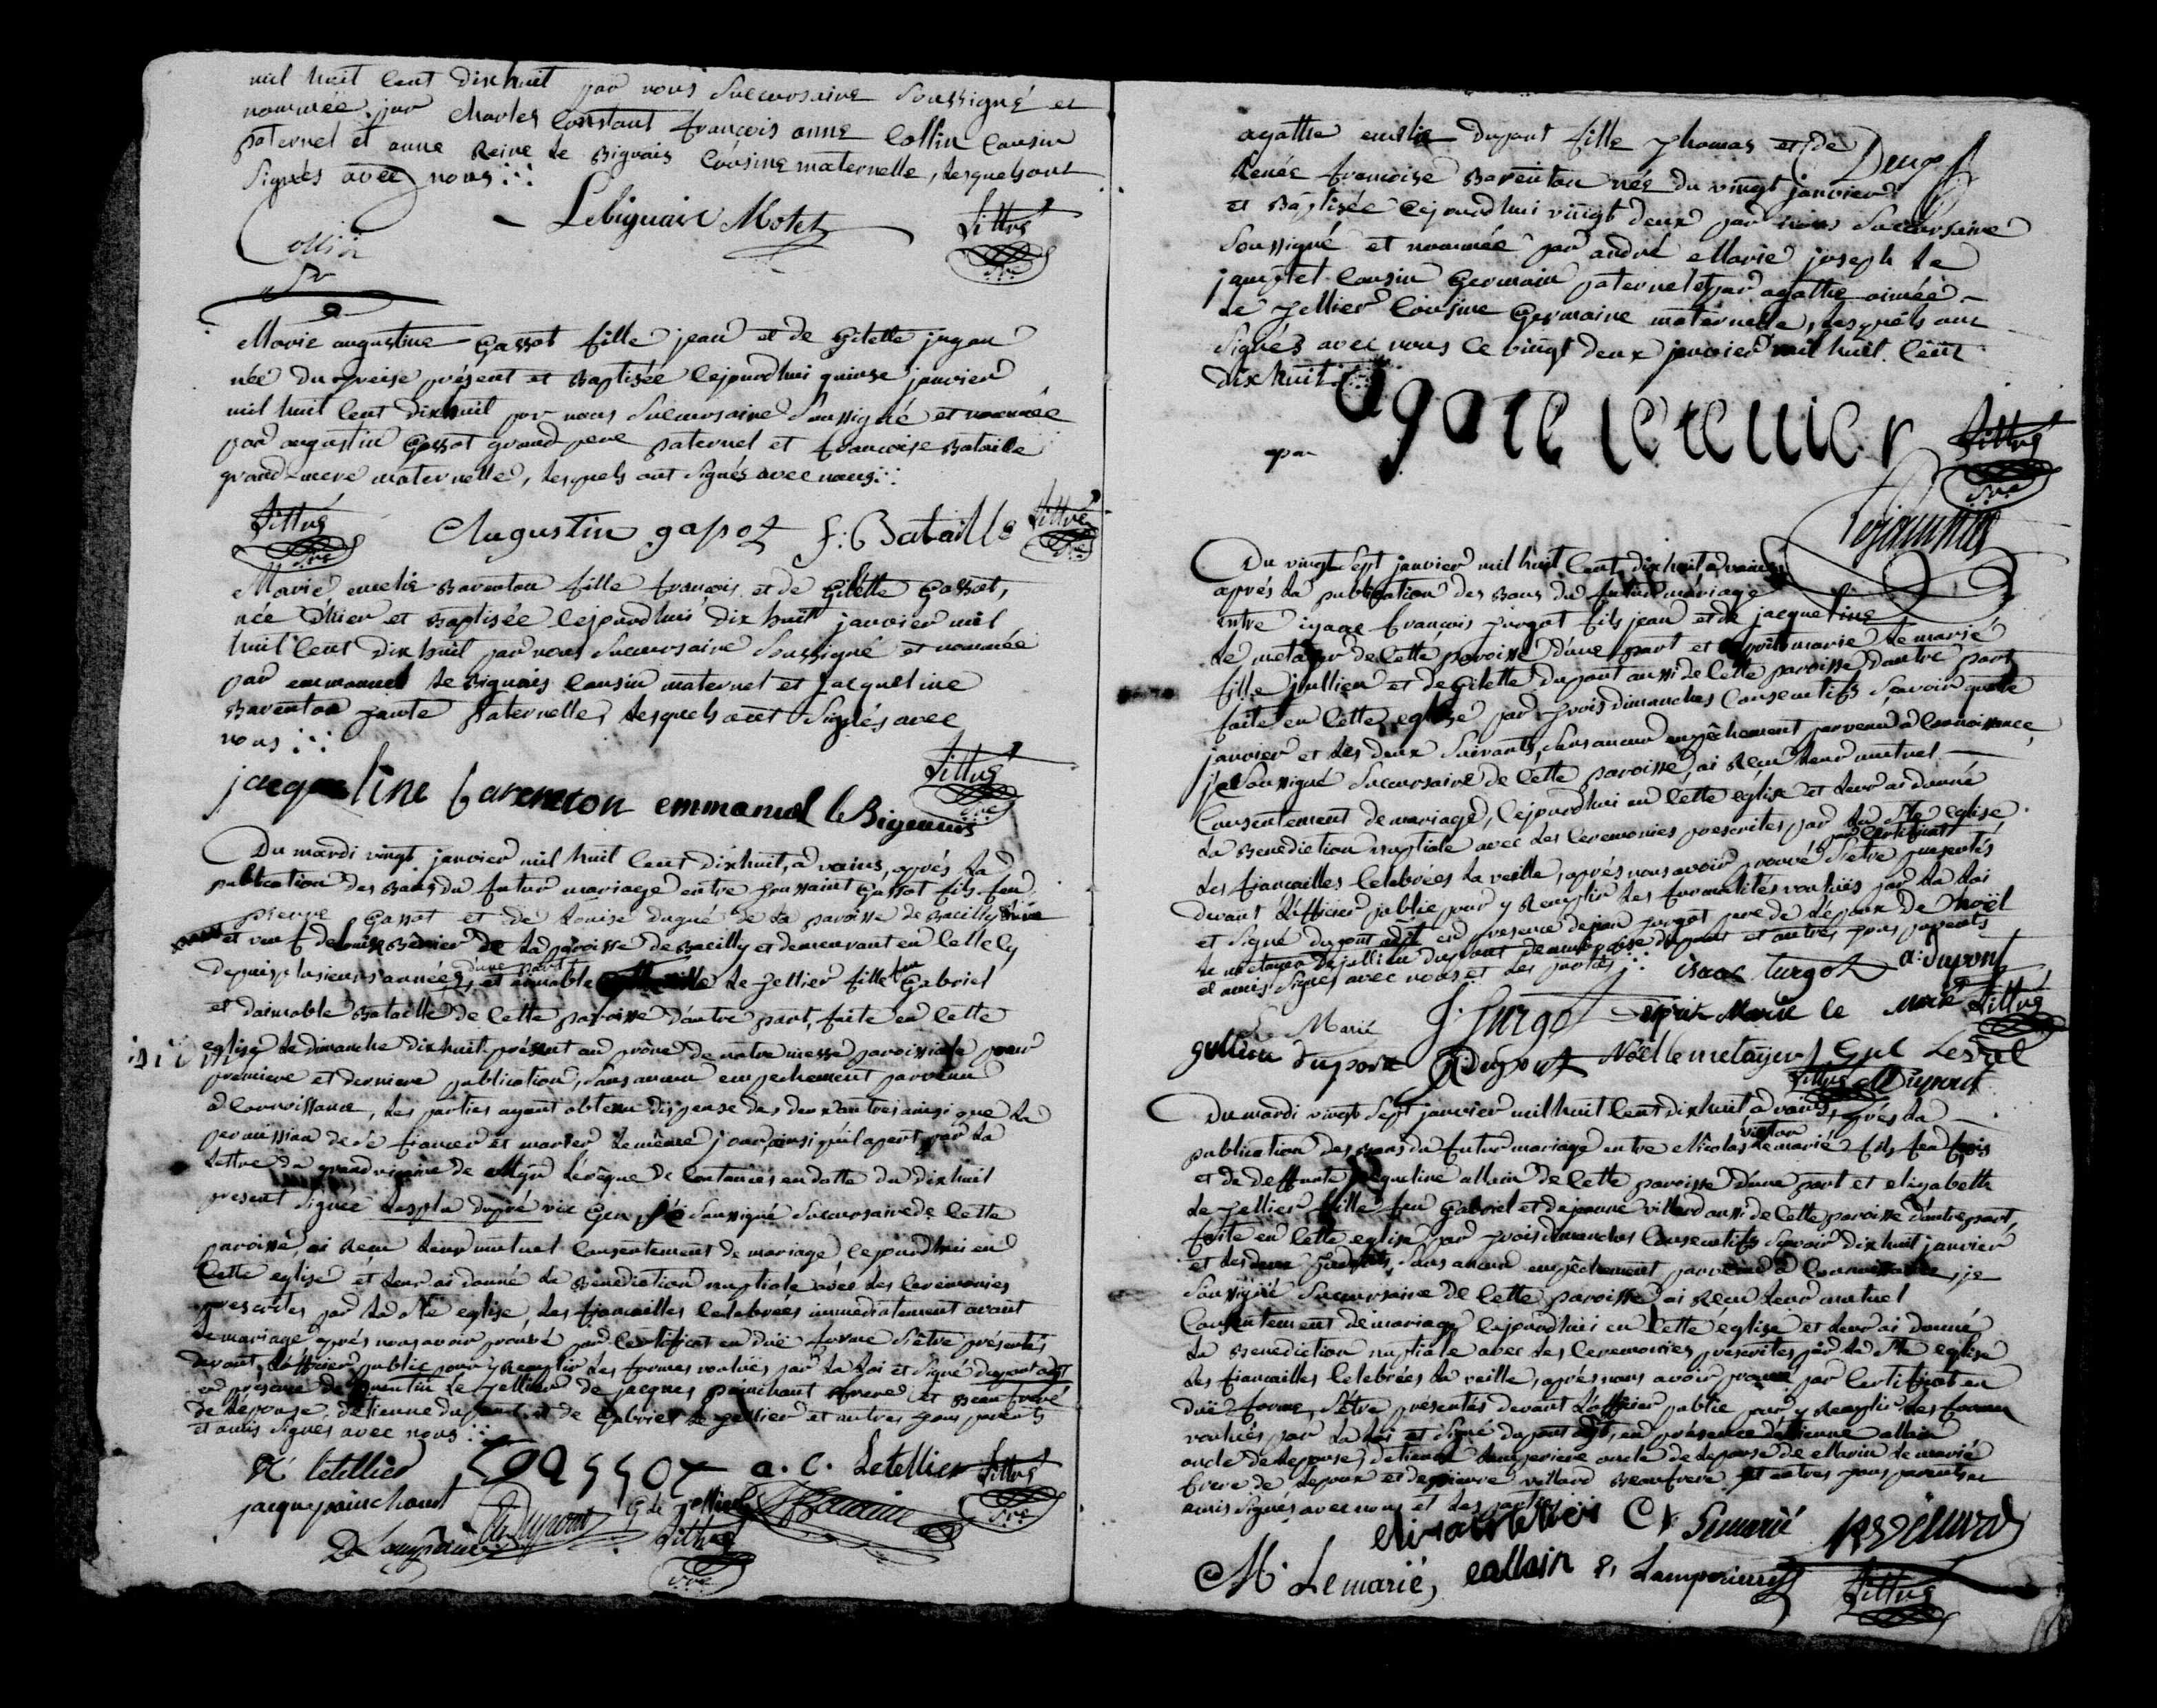 mil huit Cent dixhuit par nous Succursaire Soussigné et
nommée par Charles Constant françois anne Collin Cousin
paternel et anne Reine Le Bignais Cousine maternelle, lesquels ont
Signés avec nous
Lebignair Motet Littré
Collin
Marie augustine Gassot fille jean et de Gilette jugan
née du treise présent et Baptisée Cejourdhui quinse janvier
mil huit Cent dixhuit par nous Succursaire Soussigné et nommée
par augustin Gassot grand pere paternel et françoise Bataille
grand-mere maternelle, lesquels ont Signés avec nous
Littré Augustin gasot f: Bataille Littré
Marie emelie Barenton fille françois et de Gilette Gassot,
née d'hier et Baptisée Cejourdhui dix huit janvier mil
huit Cent dix huit par nous Succursaire Soussigné et nommée
par emmanuel Le Bignais Cousin maternel et jacqueline
Barenton tante paternelle, lesquels ont Signés avec
nous
Littré
jacqueline barenton emmanuel le Bigenais
Du mardi vingt janvier mil huit Cent dixhuit, a vains, aprés La
publication des Bans du futur mariage entre toussaint Gassot fils feu
pierre Gassot et de Louise dugué de La paroisse de Bacilly
et veuf de Louise Bernier de La paroisse de Bacilly et demeurant en Celle Cy
depuis plusieurs années, d'une part et aimable Le tellier fille feu Gabriel
et d'aimable Bataille de Cette paroisse d'autre part, faite en Cette
eglise Le dimanche dixhuit présent au prône de notre messe paroissiale pour
premiere et derniere publication, Sans aucun empechement parvenu
a Connoissance, Les parties ayant obtenu dispense des deux autres ainsi que La
permission de Se fiancer et marier Le même jour, ainsi qu'il apert par La
Lettre du grand vicaire de Mgr L'évêque de Coutances en datte du dixhuit
present Signée dupré vic Gen je Soussigné Succursaire de Cette
paroisse, ai Recu Leur mutuel Consentement de mariage, Cejourdhui en
Cette eglise et Leur ai donné La Benediction nuptiale avec Les Ceremonies
prescrites par La Ste eglise, Les fiancailles Celebrées immediatement avant
Le mariage aprés nous avoir prouvé par Certificat en duë forme S'être présentés
devant L'officier public pour y Remplir Les formes voulües par La Loi et Signé dupont adjt
en présence de quentin Le tellier de jacques painchaut frere et Beau frere
de L'épouse, d'etienne dupont et de Gabriel Le tellier et autres tous parents
et amis Signés avec nous
letellier gassot a. C. Letellier Littré
jacque painchaut Dupont G le tellier
Littré
agathe emelie dupont fille thomas et de
Renée françoise Barenton née du vingt janvier
et Baptisée Cejourdhui vingt deux par nous Succursaire
Soussigné et nommée par andré Marie joseph Le
jamptel Cousin Germain paternel et par agathe aimée
Le tellier Cousine Germaine maternelle, lesquels ont
Signés avec nous Ce vingt deux janvier mil huit Cent
dixhuit
agate letellier Littré
Du vingt Sept janvier mil huit Cent dixhuit a vains
aprés La publication des Bans du futur mariage
entre isaac françois turgot fils jean et de jacqueline
Le metayer de Cette paroisse d'une part et marie Le marié
fille jullien et de Gilette dupont aussi de Cette paroisse d'autre part
faite en Cette eglise par trois dimanches Consecutifs Savoir quatre
janvier et Les deux Suivants, Sans aucun empêchement parvenu a Connoissance,
je Soussigné Succursaire de Cette paroisse, ai Recu Leur mutuel
Consentement de mariage, Cejourdhui en Cette eglise et Leur ai donné
La Benediction nuptiale avec Les Ceremonies prescrites par La Ste eglise,
Les fiancailles Celebrées La veille, aprés nous avoir prouvé par Certificat S'être presentés
devant L'officier public pour y Remplir Les formalités voulües par La Loi
et Signé dupont adjt en presence de jean turgot pere de L'époux de Noël
Le metayer de jullien dupont de dupont et autres tous parents
et amis Signés avec nous et Les parties isaac turgot a. dupont
Le Marié J. Turgot Marie le Marié Littré
gullien dupont Dupont Noël le metayer
Littré Dupont
Du mardi vingt Sept janvier mil huit Cent dixhuit a vains, aprés La
publication des Bans du futur mariage entre Nicolas victor Lemarié fils feu fçois
et de deffunte jacqueline allain de Cette paroisse d'une part et elizabeth
Le tellier fille feu Gabriel et de jeanne villard aussi de Cette paroisse d'autre part,
faite en Cette eglise par trois dimanches Consecutifs Savoir dix huit janvier
et Les deux Sans aucun empêchement parvenu a Connoissance, je
Soussigné Succursaire de Cette paroisse ai Recu Leur mutuel
Consentement de mariage Cejourdhui en Cette eglise et Leur ai donné
La Benediction nuptiale avec Les Ceremonies prescrites par La Ste eglise
Les fiancailles Celebrées La veille, aprés nous avoir prouvé par Certificat en
duë forme, S'être présentés devant L'officier public pour y Remplir Les formes
voulües par La Loi et Signé dupont adjt, en présence d'etienne allain
oncle de L'epouse, d'etienne Lamperiere oncle de L'epouse de Marin Le marié
frere de L'epoux et de pierre villard Beaufrere et autres tous parents et
amis Signés avec nous et Les parties
Lemarié
M. Lemarié, e allain Lamperiere Littré